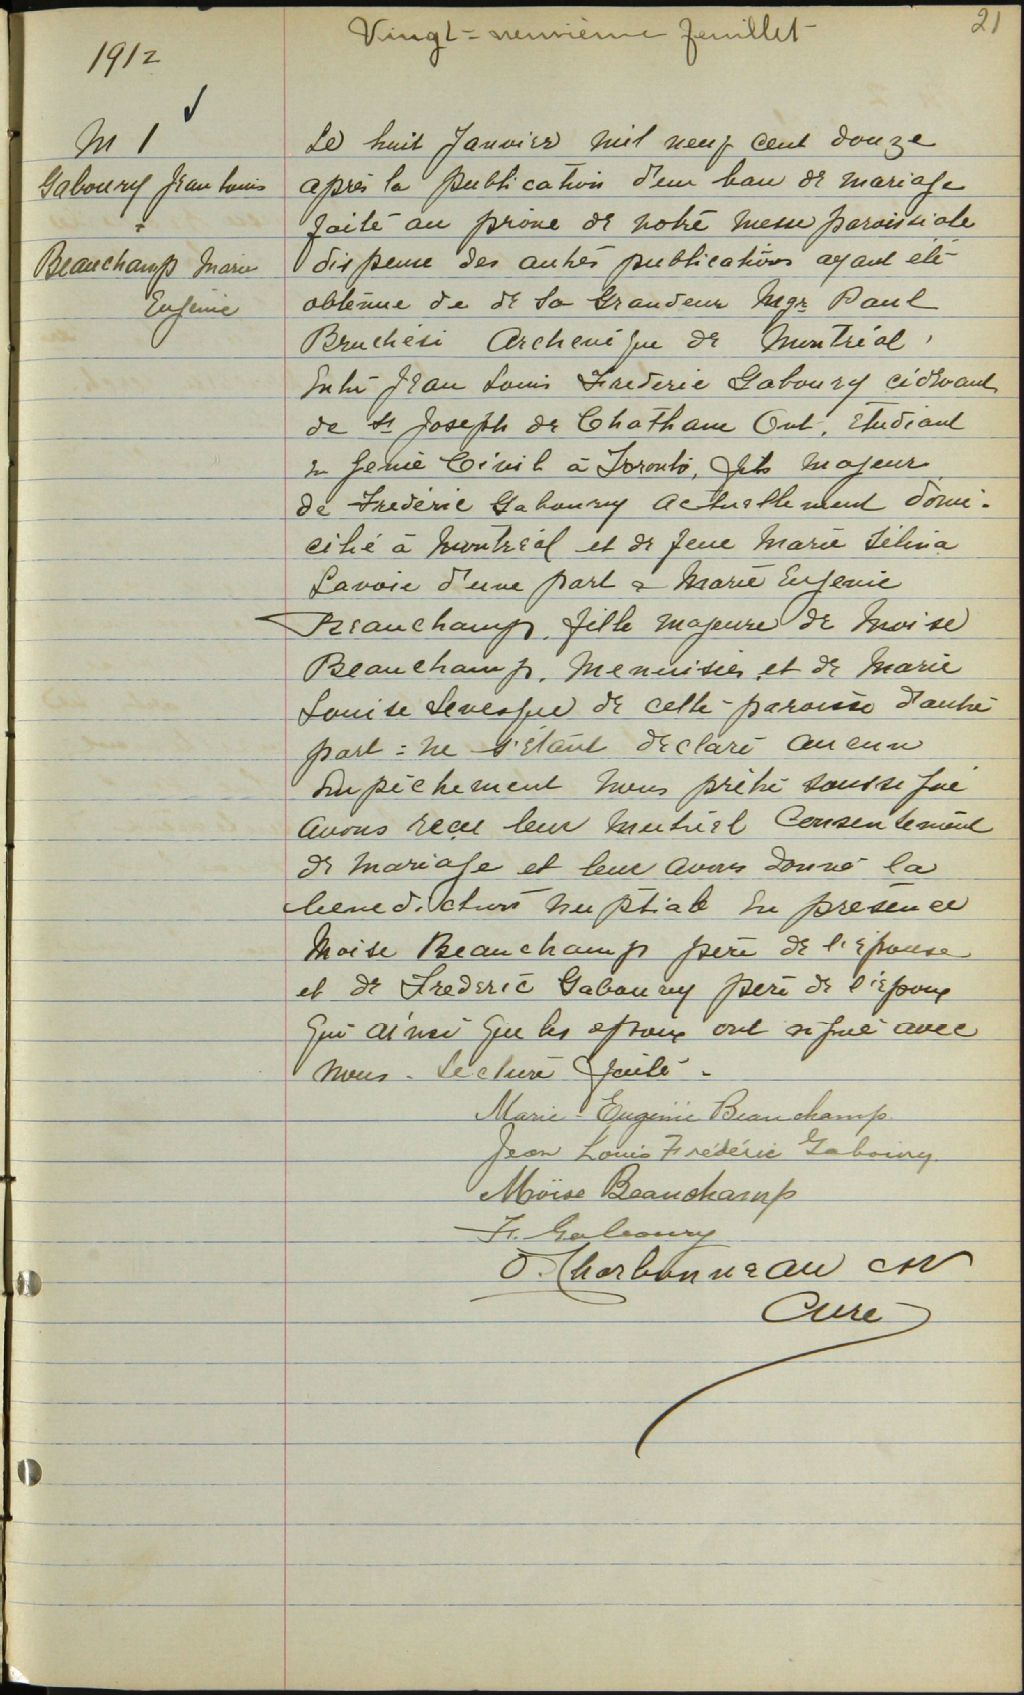 21
Vingt-neuvième feuillet
1912
M 1
Gaboury Jean Louis
+
Beauchamp Marie
Eugénie
Le huit Janvier mil neuf cent douze
après la publication d'un ban de mariage
faite au prône de notre messe paroissiale
dispense des autres publications ayant été
obtenue de de Sa Grandeur Mgr Paul
Bruchési Archevêque de Montréal,
Entre Jean Louis Frederic Gaboury cidevant
de St Joseph de Chatham Ont. Etudiant
en Genie Civil à Toronto, fils majeur
de Frédéric Gaboury actuellement domi-
cilié à Montréal et de feue Marie Sélina
Lavoie d'une part & Marie Eugenie
Beauchamp, fille majeure de Moise
Beauchamp, Menuisier, et de Marie
Louise Levesque de cette paroisse d'autre
part : ne s'étant declaré aucun
Empêchement nous prêtre soussigné
avons reçu leur mutuel Consentement
de mariage et leur avons donné la
benediction nuptiale En présence
Moise Beauchamp père de l'épouse
et de Frederic Gaboury père de l'époux
qui ainsi que les époux ont signé avec
nous. Lecture faite.
Marie-Eugénie Beauchamp
Jean Louis Frédéric Gaboury
Moïse Beauchamp
F. Gaboury
O. Charbonneau
Curé